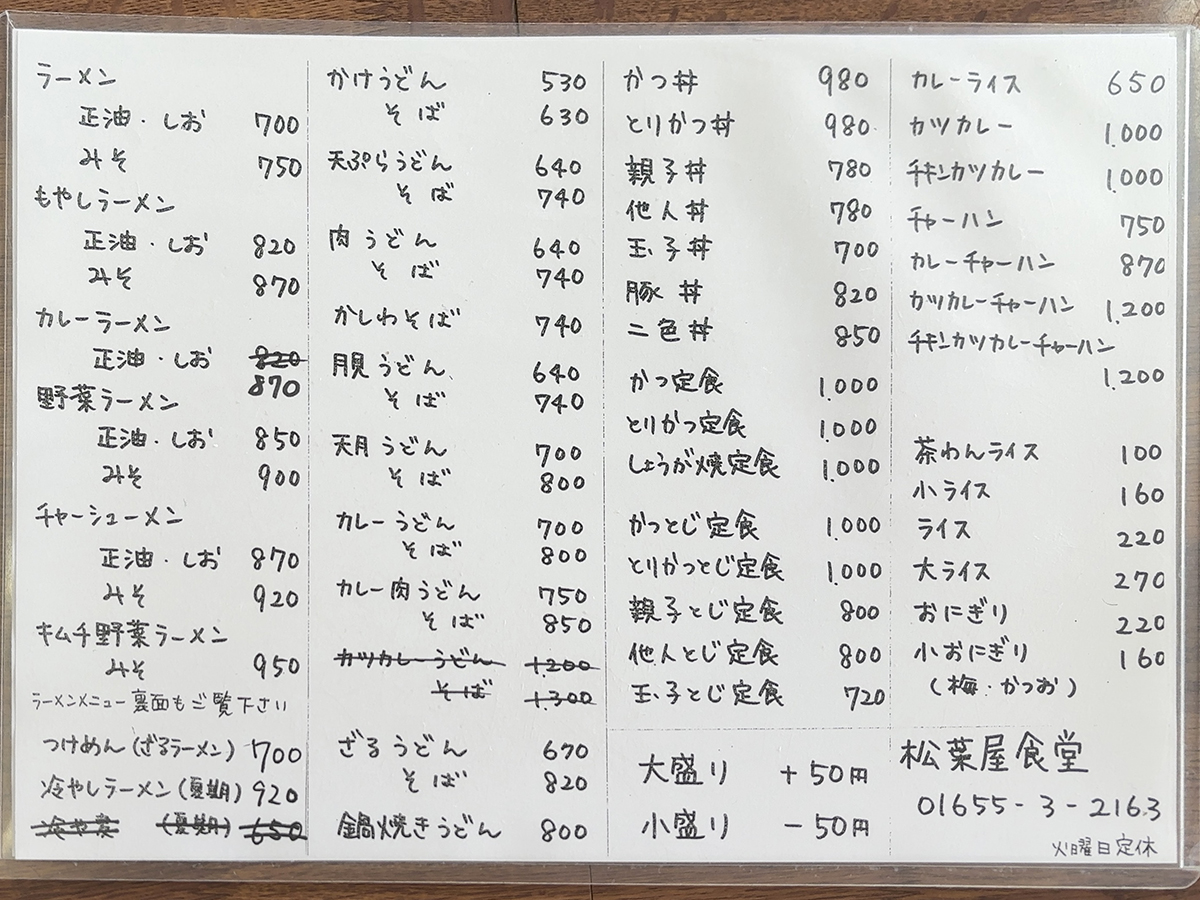 ラーメン
正油・しお 700
みそ 750
もやしラーメン
正油・しお 820
みそ 870
カレーラーメン
正油・しお 820
870
野菜ラーメン
正油・しお 850
みそ 900
チャーシューメン
正油・しお 870
みそ 920
キムチ野菜ラーメン
みそ 950
ラーメンメニュー裏面もご覧下さい
つけめん(ざるラーメン) 700
冷やしラーメン(夏期) 920
(夏期) 650
かけうどん 530
そば 630
天ぷらうどん 640
そば 740
肉うどん 640
そば 740
かしわそば 740
月見うどん 640
そば 740
天月うどん 700
そば 800
カレーうどん 700
そば 800
カレー肉うどん 750
そば 850
カツカレーうどん 1.200
そば 1.300
ざるうどん 670
そば 820
鍋焼きうどん 800
かつ丼 980
とりかつ丼 980
親子丼 780
他人丼 780
玉子丼 700
豚丼 820
二色丼 850
かつ定食 1.000
とりかつ定食 1.000
しょうが焼定食 1.000
かつとじ定食 1.000
とりかつとじ定食 1.000
親子とじ定食 800
他人とじ定食 800
玉子とじ定食 720
大盛り +50円
小盛り -50円
カレーライス 650
カツカレー 1.000
チキンカツカレー 1.000
チャーハン 750
カレーチャーハン 870
カツカレーチャーハン 1.200
チキンカツカレーチャーハン
1.200
茶わんライス 100
小ライス 160
ライス 220
大ライス 270
おにぎり 220
小おにぎり 160
(梅・かつお)
松葉屋食堂
01655-3-2163
火曜日定休